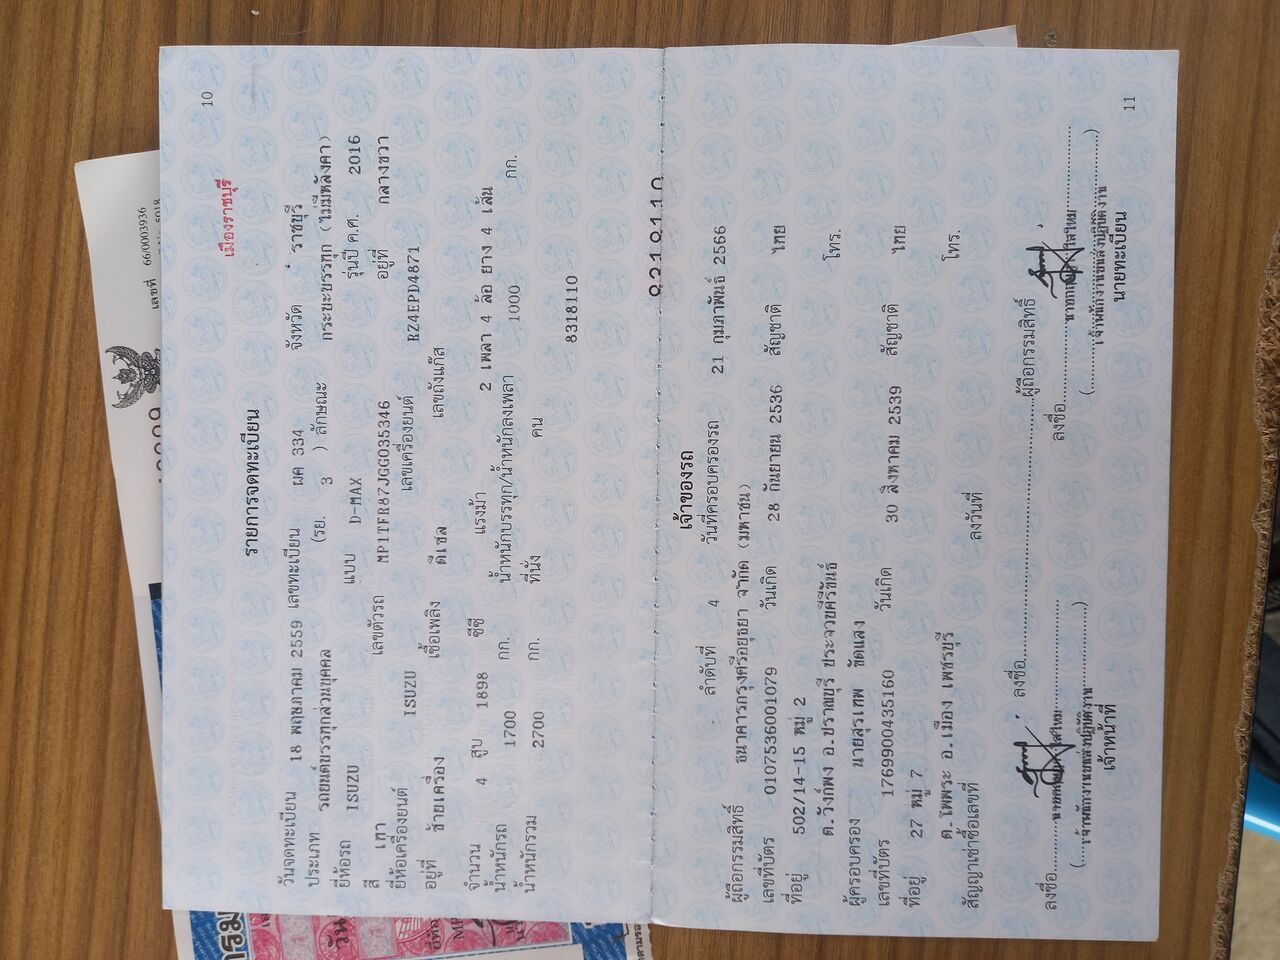 10
เมืองราชบุรี
รายการจดทะเบียน
วันจดทะเบียน 18 พฤษภาคม 2559 เลขทะเบียน ผค 334 จังหวัด ราชบุรี
ประเภท รถยนต์บรรทุกส่วนบุคคล (รย. 3 ) ลักษณะ กระบะบรรทุก (ไม่มีหลังคา)
ยี่ห้อรถ ISUZU แบบ D-MAX รุ่นปี ค.ศ. 2016
สี เทา เลขตัวรถ MP1TFR87JGG035346 อยู่ที่ กลางขวา
ยี่ห้อเครื่องยนต์ ISUZU เลขเครื่องยนต์ RZ4EPD4871
อยู่ที่ ซ้ายเครื่อง เชื้อเพลิง ดีเซล เลขถังแก๊ส
จำนวน 4 สูบ 1898 ซีซี แรงม้า 2 เพลา 4 ล้อ ยาง 4 เส้น
น้ำหนักรถ 1700 กก. น้ำหนักบรรทุก/น้ำหนักลงเพลา 1000 กก.
น้ำหนักรวม 2700 กก. ที่นั่ง คน
8318110
เจ้าของรถ
ลำดับที่ 4 วันที่ครอบครองรถ 21 กุมภาพันธ์ 2566
ผู้ถือกรรมสิทธิ์ ธนาคารกรุงศรีอยุธยา จำกัด (มหาชน)
เลขที่บัตร 0107536001079 วันเกิด 28 กันยายน 2536 สัญชาติ ไทย
ที่อยู่ 502/14-15 หมู่ 2
ต.วังก์พง อ.ปราณบุรี ประจวบคีรีขันธ์ โทร.
ผู้ครอบครอง นายสุรเทพ ขัดแสง
เลขที่บัตร 1769900435160 วันเกิด 30 สิงหาคม 2539 สัญชาติ ไทย
ที่อยู่ 27 หมู่ 7
ต.โพพระ อ.เมือง เพชรบุรี โทร.
สัญญาเช่าซื้อเลขที่ ลงวันที่
ลงชื่อ ผู้ถือกรรมสิทธิ์
ลงชื่อ ลงชื่อ
เจ้าหน้าที่ นายทะเบียน
11
เลขที่ 66/0003936